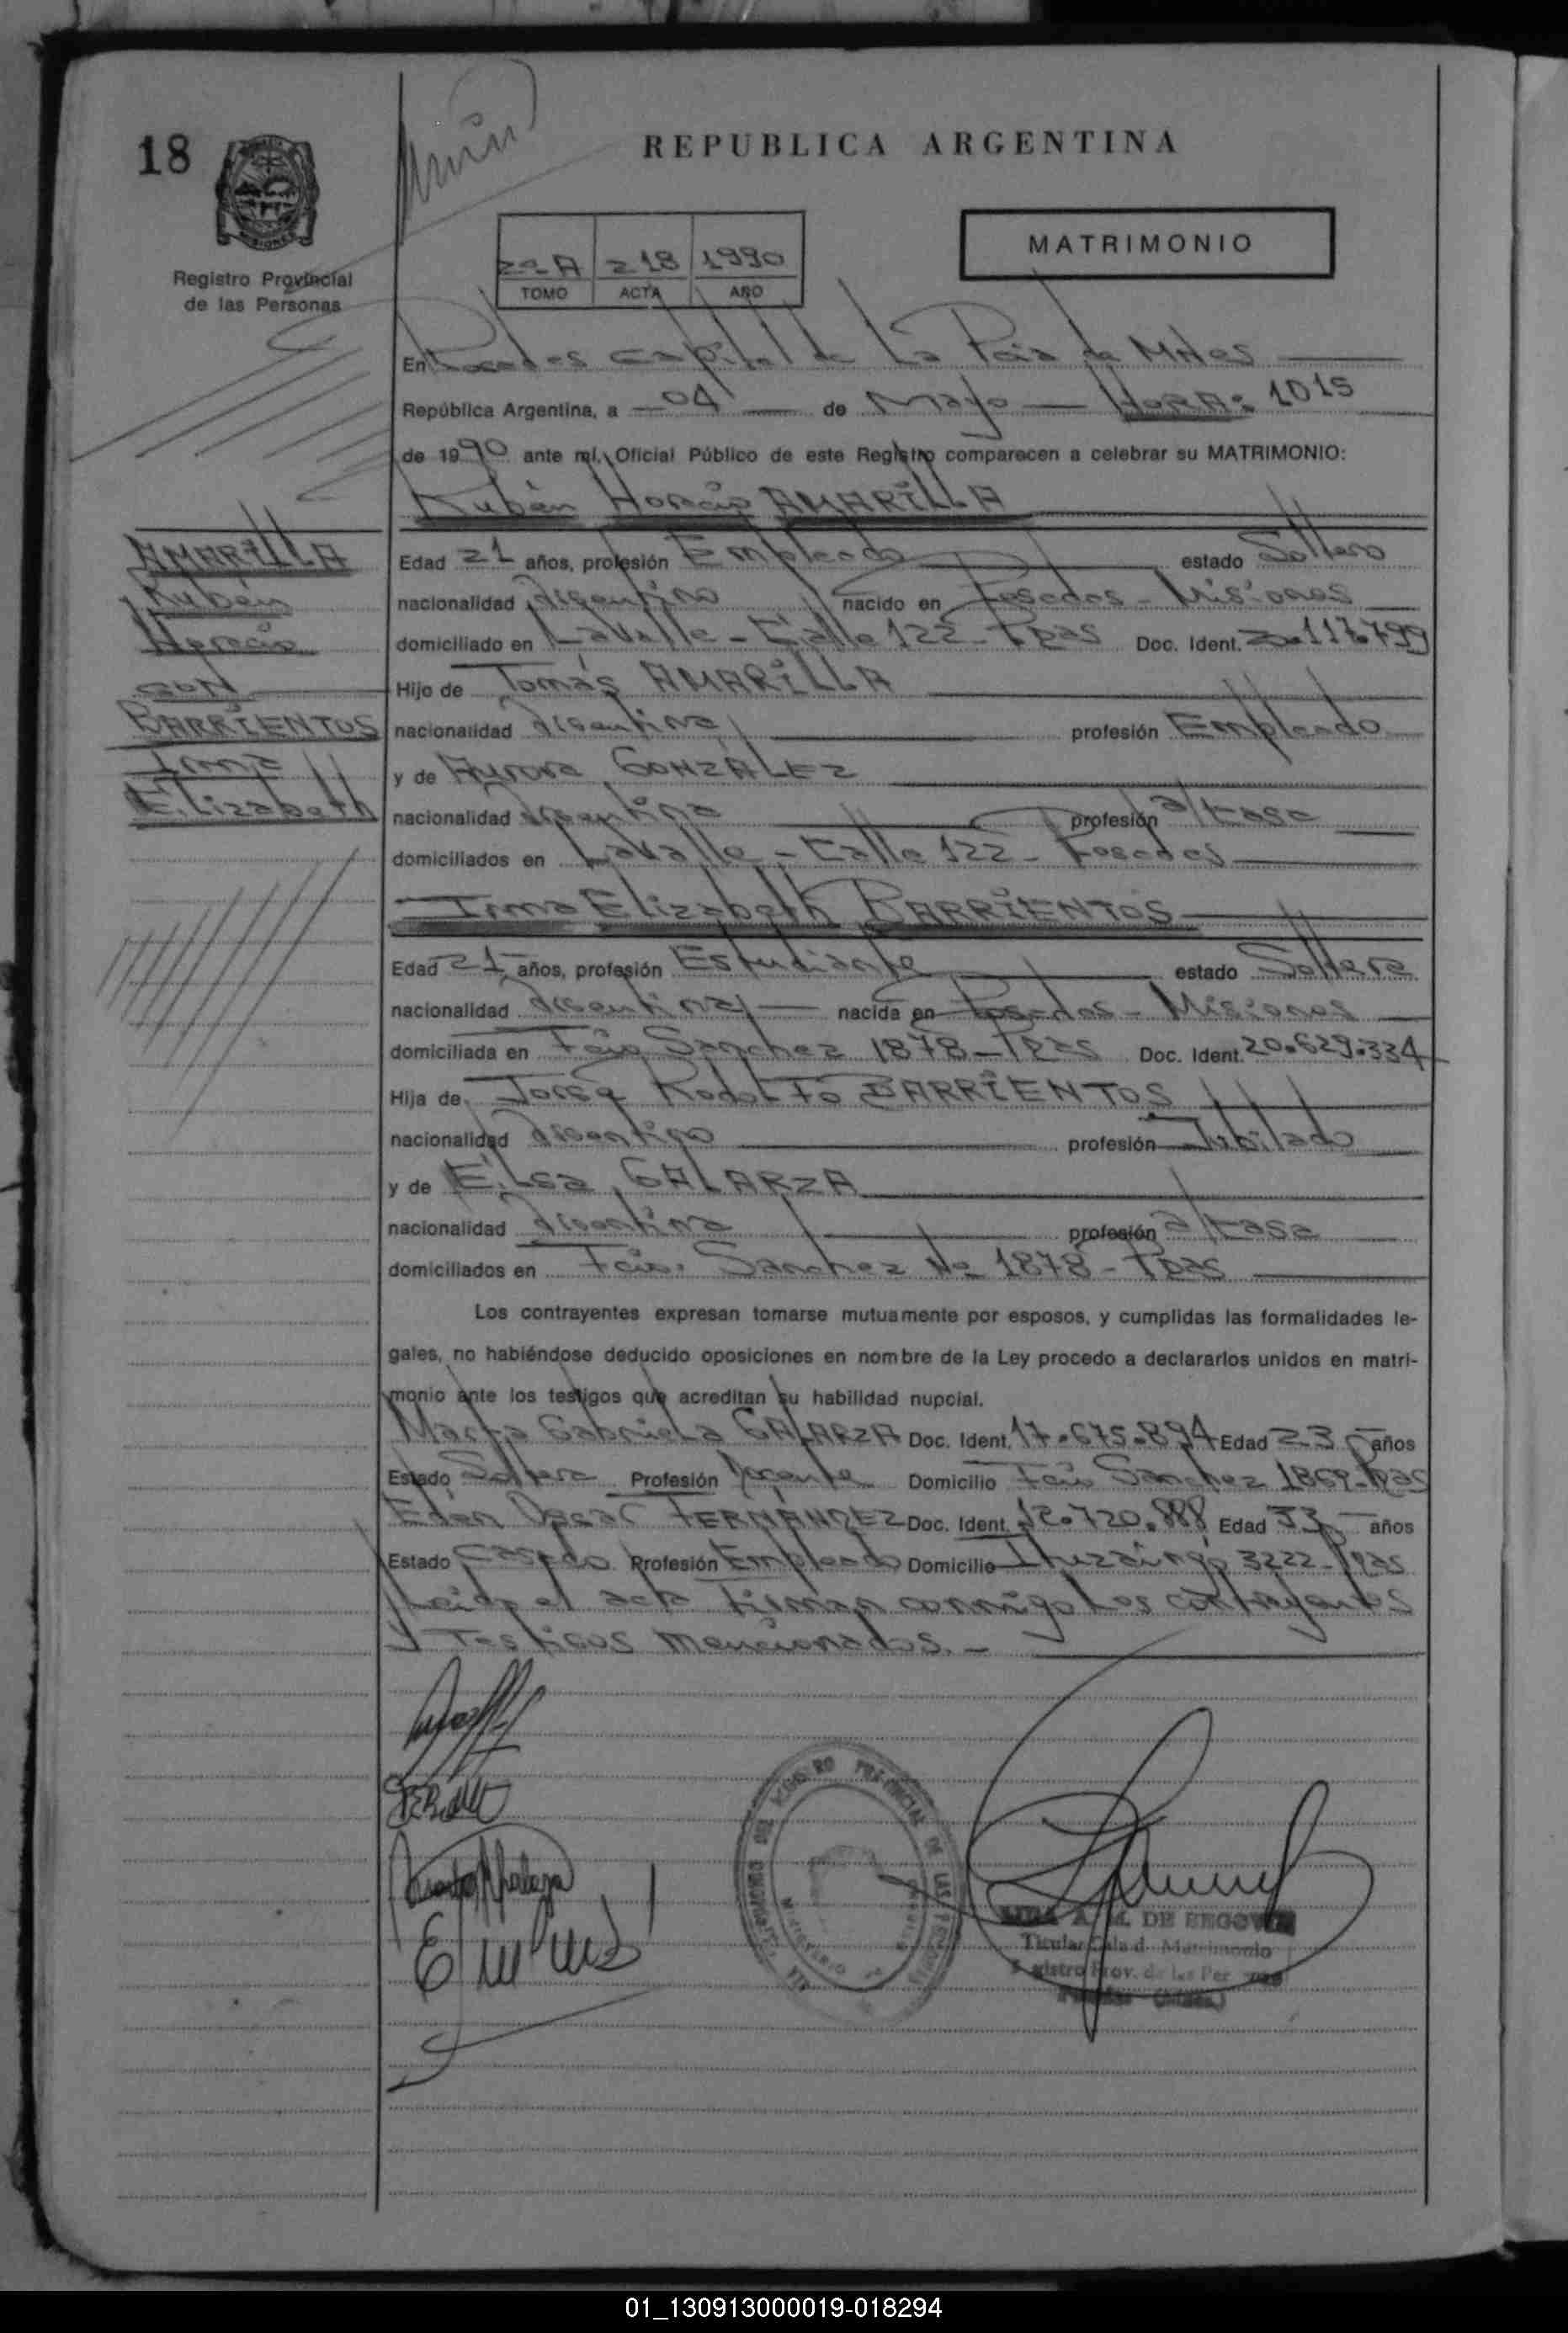 18
REPUBLICA ARGENTINA
MISIONES
Registro Provincial
de las Personas
2º-A 218 1990
TOMO ACTA AÑO
MATRIMONIO
En Posadas Capital de La Pcia de Mnes
República Argentina, a 04 de Mayo HORA: 1015
de 1990 ante mí, Oficial Público de este Registro comparecen a celebrar su MATRIMONIO:
Rubén Horacio AMARILLA
AMARILLA
Rubén
Horacio
con
BARRIENTOS
Irma
Elizabeth
Edad 21 años, profesión Empleado estado Soltero
nacionalidad Argentino nacido en Posadas - Misiones
domiciliado en Lavalle - Calle 122 - Ppas Doc. Ident. 20.117.799
Hijo de Tomás AMARILLA
nacionalidad Argentina profesión Empleado
y de Aurora GONZÁLEZ
nacionalidad Argentina profesión a/casa
domiciliados en Lavalle - Calle 122 - Posadas
Irma Elizabeth BARRIENTOS
Edad 21 años, profesión Estudiante estado Soltera
nacionalidad Argentina nacida en Posadas - Misiones
domiciliada en Fcio Sánchez 1878 - Ppas Doc. Ident. 20.629.334
Hija de Jorge Rodolfo BARRIENTOS
nacionalidad Argentino profesión Jubilado
y de Elsa GALARZA
nacionalidad Argentina profesión a/casa
domiciliados en Fcio. Sánchez No 1878 - Ppas
Los contrayentes expresan tomarse mutuamente por esposos, y cumplidas las formalidades le-
gales, no habiéndose deducido oposiciones en nombre de la Ley procedo a declararlos unidos en matri-
monio ante los testigos que acreditan su habilidad nupcial.
Marta Gabriela GALARZA Doc. Ident. 17.675.894 Edad 23 años
Estado Soltera Profesión Docente Domicilio Fcio Sánchez 1869 - Ppas
Edén Oscar FERNÁNDEZ Doc. Ident. 12.720.888 Edad 33 años
Estado Casado Profesión Empleado Domicilio Ituzaingó 3222 - Ppas
Leida el acta firman conmigo los contrayentes
y Testigos mencionados. -
A. M. DE SEGOVIA
Titular Sala d. Matrimonio
Registro Prov. de las Personas
01_130913000019-018294